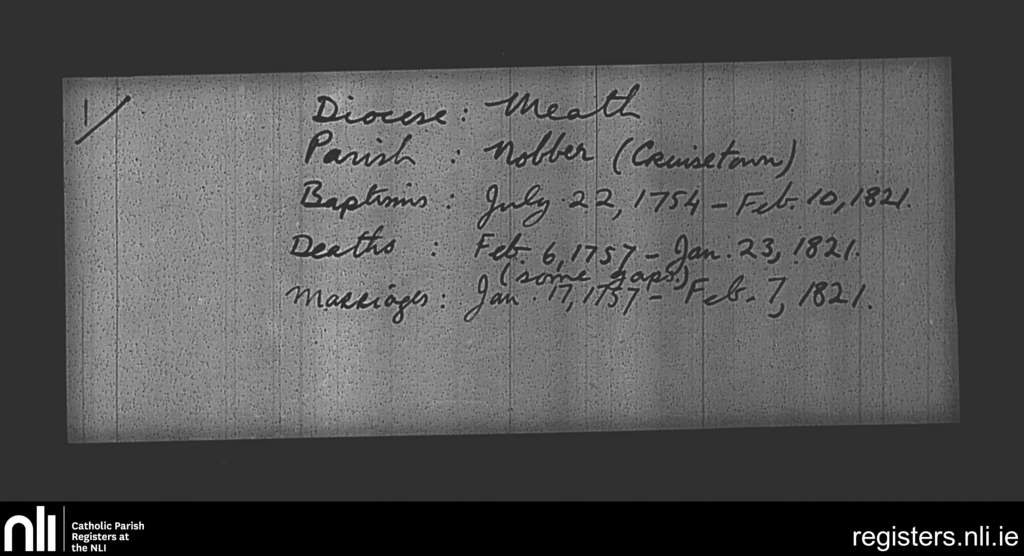 1/
Diocese: Meath
Parish : Nobber (Cruisetown)
Baptisms: July 22, 1754 - Feb. 10, 1821.
Deaths : Feb. 6, 1757 - Jan. 23, 1821.
(some gaps.)
Marriages: Jan. 17, 1757 - Feb. 7, 1821.
nli
Catholic Parish
Registers at
the NLI
registers.nli.ie